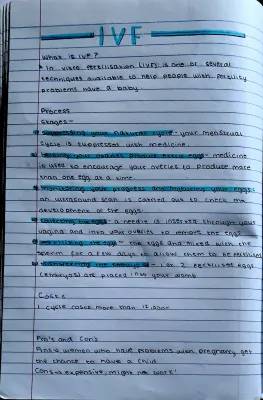 IVF
What is IVF?
In vitro fertilisation (IVF) is one of several
techniques available to help people with fertility
problems have a baby.
Process
Stages-
Suppressing your natural cycle - your menstrual
cycle is suppressed with medicine.
Helping your ovaries produce extra eggs - medicine
is used to encourage your ovaries to produce more
than one egg at a time.
Monitoring your progress and maturing your eggs:
an ultrasound scan is carried out to check the
development of the eggs.
Collecting the eggs - a needle is inserted through your
vagina and into your ovaries to remove the eggs.
Fertilising the eggs - the eggs are mixed with the
sperm for a few days to allow them to be fertilised
Transferring the embryos - 1 or 2 fertilised eggs
(embryos) are placed into your womb
Costs
1 cycle costs more than
Pro's and Con's
Pros: women who have problems with pregnancy get
the chance to have a child
Cons: expensive, might not work!